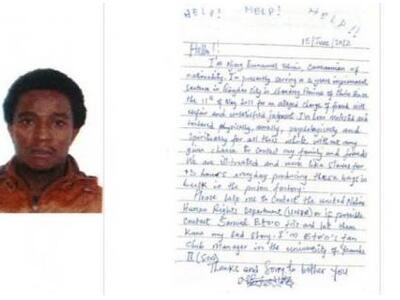 HELP! HELP! HELP!!
15/June/2012
Hello!
I'm Njong Emmanuel, Cameroonian of
nationality. I'm presently serving a 3 years imprisonment
sentence in Qingdao City in Shandong Province of China since
the 11th of May 2011 for an alleged charge of fraud with
unfair and unsatisfied judgement. I've been molested and
tortured physically, morally, psychologically and
spiritually for all these while without any
given chance to contact my family and friends
We are ill-treated and work like slaves for
13 hours everyday producing these bags in
bulk in the prison factory.
Please help me to contact the United Nations
Human Rights Department (UNHR) or is possible
contact Samuel Eto'o fils and let them
know my sad story. I'm Eto'o's fan
club manager in the university of Yaounde
II (Soa)
Thanks and Sorry to bother you